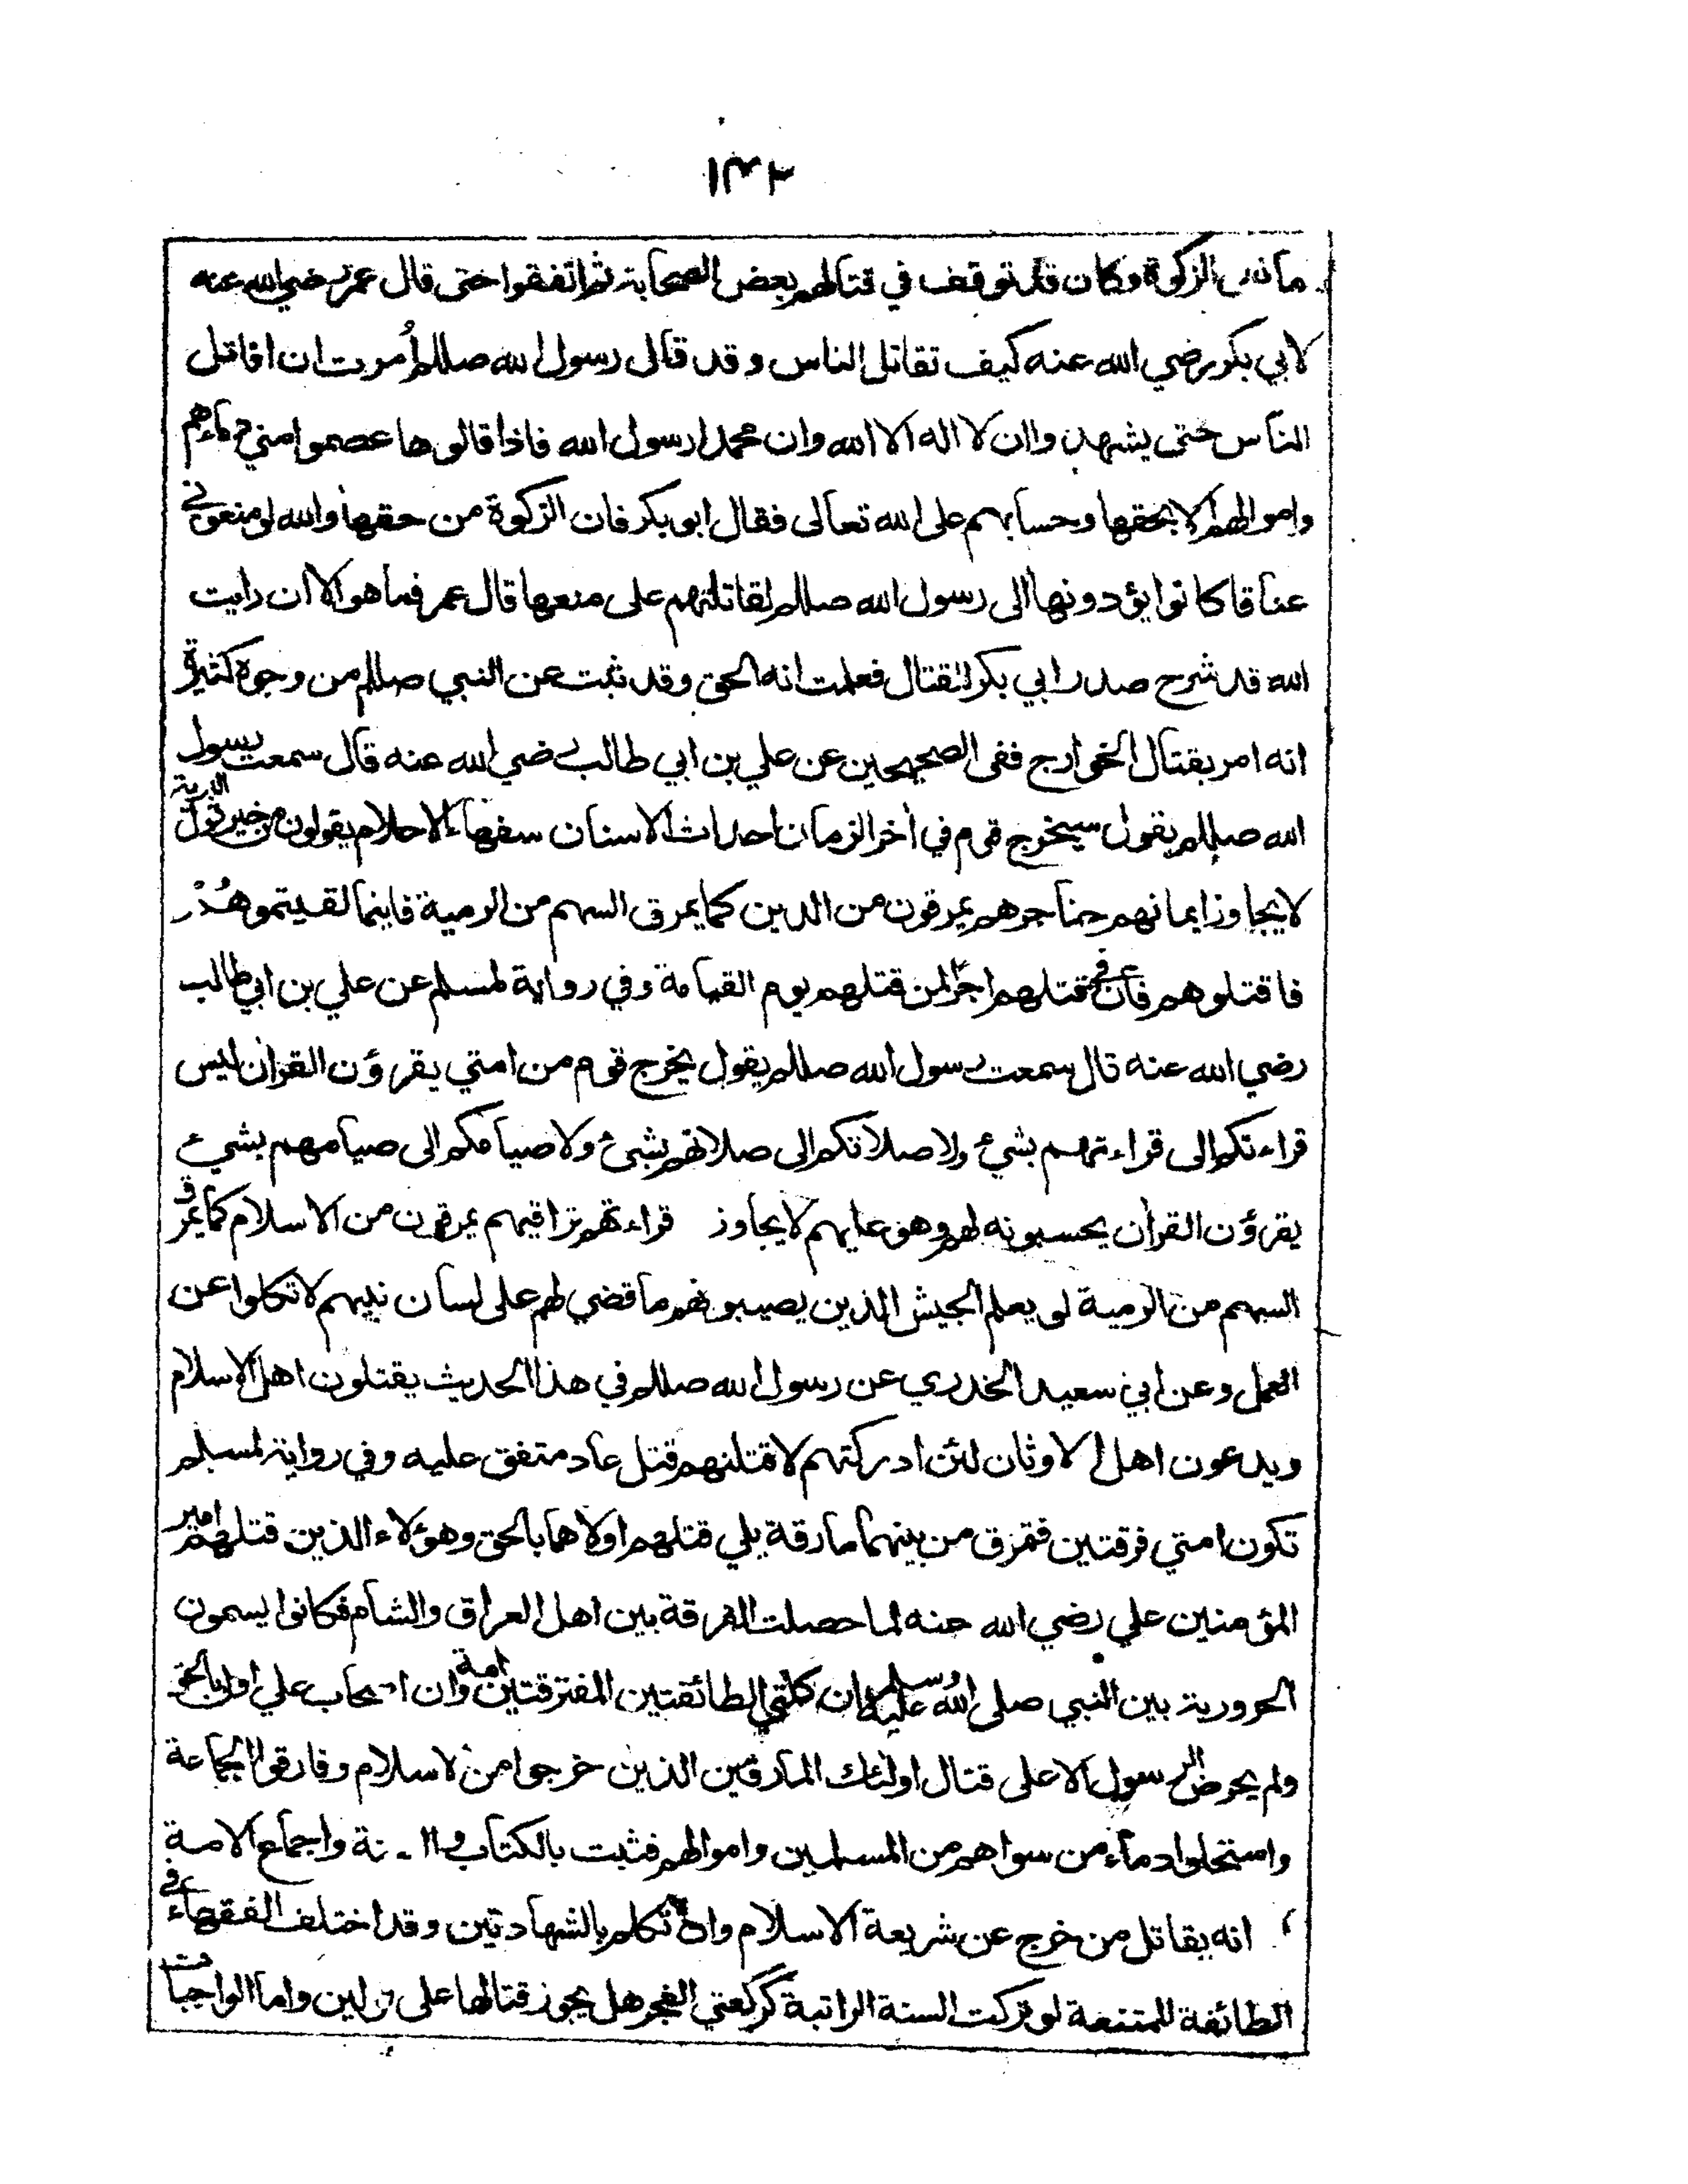 ١٣٢
مانعي الزكوة وكان قد توقف في قتالهم بعض الصحابة ثم اتفقوا حتى قال عمر رضي الله عنه
لابي بكر رضي الله عنه كيف تقاتل الناس وقد قال رسول الله صللم أمرت ان اقاتل
الناس حتى يشهدوا ان لا اله الا الله وان محمدا رسول الله فاذا قالوها عصموا مني دماءهم
واموالهم الا بحقها وحسابهم على الله تعالى فقال ابو بكر فان الزكوة من حقها والله لو منعوني
عناقا كانوا يؤدونها الى رسول الله صللم لقاتلتهم على منعها قال عمر فما هو الا ان رايت
الله قد شرح صدر ابي بكر للقتال فعلمت انه الحق وقد ثبت عن النبي صللم من وجوه كثيرة
انه امر بقتال الخوارج ففي الصحيحين عن علي بن ابي طالب رضي الله عنه قال سمعت رسول
الله صللم يقول سيخرج قوم في اخر الزمان احداث الاسنان سفهاء الاحلام يقولون من خير قول البرية
لا يجاوز ايمانهم حناجرهم يمرقون من الدين كما يمرق السهم من الرمية فاينما لقيتموهم
فاقتلوهم فان في قتلهم اجرا لمن قتلهم يوم القيامة وفي رواية لمسلم عن علي بن ابي طالب
رضي الله عنه قال سمعت رسول الله صللم يقول يخرج قوم من امتي يقرؤن القران ليس
قراءتكم الى قراءتهم بشيء ولا صلاتكم الى صلاتهم بشيء ولا صيامكم الى صيامهم بشيء
يقرؤن القران يحسبونه لهم وهو عليهم لا يجاوز قراءتهم تراقيهم يمرقون من الاسلام كما يمرق
السهم من الرمية لو يعلم الجيش الذين يصيبونهم ما قضي لهم على لسان نبيهم لاتكلوا عن
العمل وعن ابي سعيد الخدري عن رسول الله صللم في هذا الحديث يقتلون اهل الاسلام
ويدعون اهل الاوثان لئن ادركتهم لاقتلنهم قتل عاد متفق عليه وفي رواية لمسلم
تكون امتي فرقتين فتمرق من بينهما مارقة يلي قتلهم اولاهما بالحق وهؤلاء الذين قتلهم امير
المؤمنين علي رضي الله عنه لما حصلت الفرقة بين اهل العراق والشام فكانوا يسمون
الحرورية بين النبي صلى الله عليه وسلم ان كلتي الطائفتين المفترقتين امة وان اصحاب علي اولى بالحق
ولم يحرض الرسول الا على قتال اولئك المارقين الذين خرجوا من لاسلام وفارقوا الجماعة
واستحلوا دماء من سواهم من المسلمين واموالهم فثبت بالكتاب والسنة واجماع الامة
انه يقاتل من خرج عن شريعة الاسلام وان تكلم بالشهادتين وقد اختلف الفقهاء في
الطائفة الممتنعة لو تركت السنة الراتبة كركعتي الفجر هل يجوز قتالها على قولين واما الواجبات